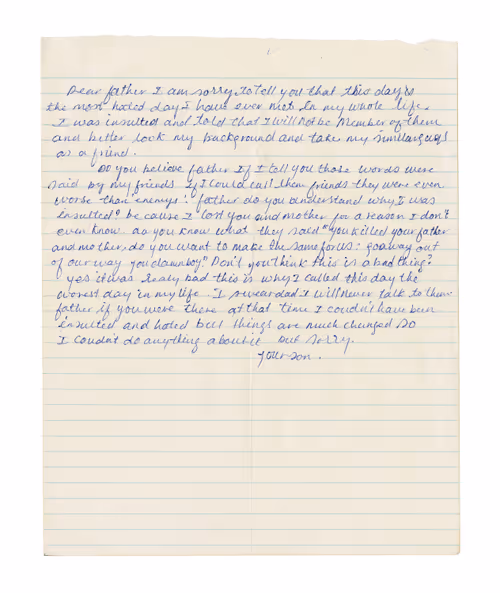 Dear father I am sorry to tell you that this day is
the most hated day I have ever met in my whole life.
I was insulted and told that I will not be member of them
and better look my background and take my similar guys
as a friend.
Do you believe father If I tell you those words were
said by my friends If I could call them friends they were even
worse than enemys! father do you understand why I was
insulted? be cause I lost you and mother for a reason I don't
even know. do you know what they said "you killed your father
and mother, do you want to make the same for us: go away out
of our way you damn boy" Don't you think this is a bad thing?
yes it was realy bad this is why I called this day the
worest day in my life. I swear dad I will never talk to them
father if you were there at that time I couldn't have been
insulted and hated but things are much changed so
I couldn't do anything about it but sorry.
your son.